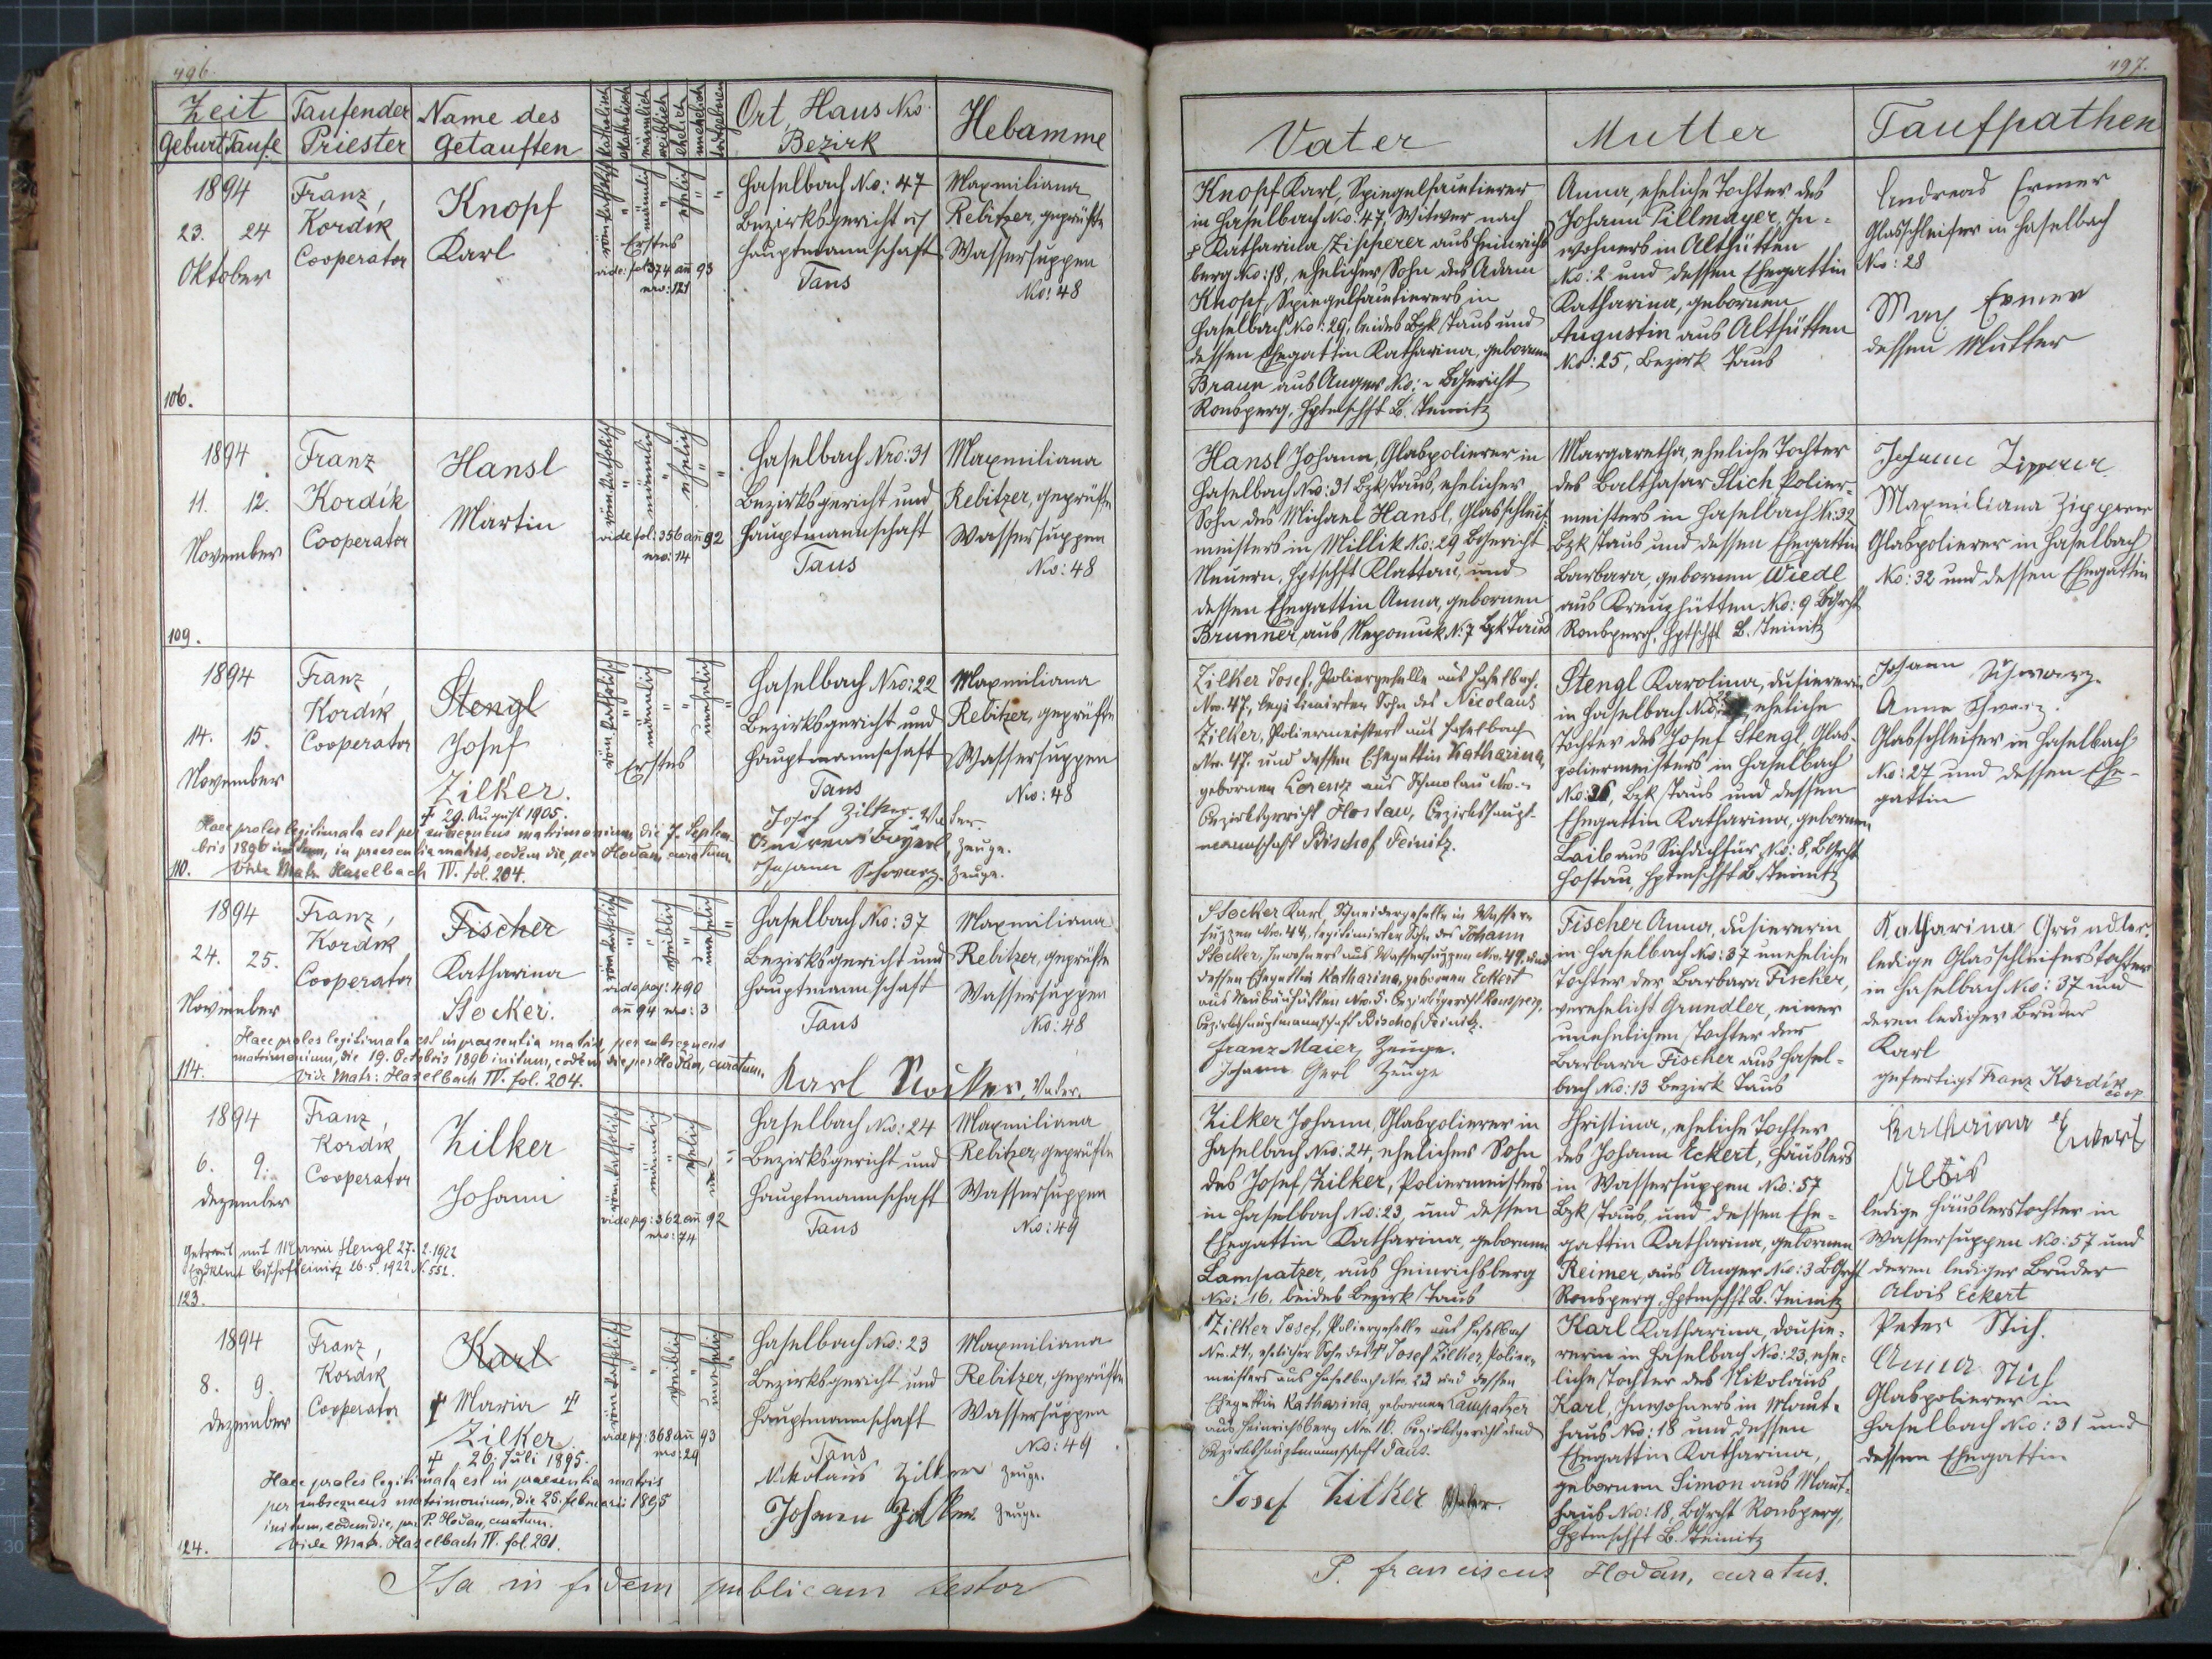 496.
Zeit
Geburt Taufe
Taufender
Priester
Name des
Getauften
Katholisch
akatholisch
männlich
weiblich
ehelich
unehelich
todtgeboren
Ort, Haus Nro.
Bezirk
Hebamme
1894
23. 24
Oktober
106.
Franz
Kordik
Cooperator
Knopf
Karl
röm. katholisch " männlich " ehelich " "
Erstes
vide: fol 374 an̄ 93
nro: 121
Haselbach No: 47
Bezirksgericht u
Hauptmannschaft
Taus
Maxmiliana
Rebitzer, geprüfte
Wassersuppen
No: 48
1894
11. 12.
November
109.
Franz
Kordik
Cooperator
Hansl
Martin
röm. katholisch " männlich " ehelich " "
vide fol: 356 an̄ 92
nro: 14
Haselbach Nro: 31
Bezirksgericht und
Hauptmannschaft
Taus
Maxmiliana
Rebitzer, geprüfte
Wassersuppen
No: 48
1894
14. 15.
November
110.
Franz
Kordik
Cooperator
Stengl
Josef
Zilker.
† 29. August 1905.
röm. katholisch " männlich " " unehelich "
Erstes
Haselbach Nro: 22
Bezirksgericht und
Hauptmannschaft
Taus
Maxmiliana
Rebitzer, geprüfte
Wassersuppen
No: 48
Haec proles legitimata est per subsequens matrimonium die 7. Septem-
bris 1896 initum, in praesentia matris, eodem die per Hodan, curatum.
Vide Matr. Haselbach IV. fol. 204.
Josef Zilker Vater.
Andreas Zeuge.
Johann Schwarz. Zeuge.
1894
24. 25.
November
114.
Franz
Kordik
Cooperator
Fischer
Katharina
Stocker.
röm. katholisch " " weiblich " unehelich "
vide pag: 490
an̄ 94 nro: 3
Haselbach No: 37
Bezirksgericht und
Hauptmannschaft
Taus
Maxmiliana
Rebitzer, geprüfte
Wassersuppen
No: 48
Haec proles legitimata est in praesentia matris, per subsequens
matrimonium, die 19. Octobris 1896 initum, eodem die per Hodan, curatum.
Vide Matr: Haselbach IV. fol. 204.
Karl Stocker, Vater.
1894
6. 9.
Dezember
123.
Franz
Kordik
Cooperator
Zilker
Johann
röm. katholisch " männlich " ehelich "
vide pg: 362 an̄ 92
nro: 74
Haselbach No: 24
Bezirksgericht und
Hauptmannschaft
Taus
Maxmiliana
Rebitzer, geprüfte
Wassersuppen
No: 49
Getraut mit Maria Stengl 27. 2. 1922
Bischofteinitz 26. 5. 1922 N. 552.
1894
8. 9.
Dezember
124.
Franz
Kordik
Cooperator
Karl
† Maria †
Zilker
† 26. Juli 1895.
röm. katholisch " " weiblich " unehelich "
vide pg: 368 an̄ 93
nro: 29
Haselbach No: 23
Bezirksgericht und
Hauptmannschaft
Taus
Maxmiliana
Rebitzer, geprüfte
Wassersuppen
No: 49
Haec proles legitimata est in praesentia matris
per subsequens matrimonium, die 25. februarii 1895
initum, eodem die, per P. Hodan, curatum.
Vide Matr. Haselbach IV. fol. 201.
Nikolaus Zilker Zeuge.
Johann Zilker Zeuge.
Ita in fidem publicam testor
497.
Vater
Mutter
Taufpathen
Knopf Karl, Spiegelfacetierer
in Haselbach No: 47, Witwer nach
† Katharina Zipperer aus Heinrichs
berg No: 18, ehelicher Sohn des Adam
Knopf, Spiegelfacetierers in
Haselbach No: 29, beides Bzk Taus und
dessen Ehegattin Katharina, gebornen
Braun aus Anger No: 2 BGericht
Ronsperg, Hptmschft B. Teinitz
Anna, eheliche Tochter des
Johann Pillmayer, In-
wohners in Althütten
No: 2 und dessen Ehegattin
Katharina, gebornen
Augustin aus Althütten
No: 25, Bezirk Taus
Andreas Ermer
Glasschleifer in Haselbach
No: 28
Ermer
dessen Mutter
Hansl Johann, Glaspolierer in
Haselbach No: 31 Bzk Taus, ehelicher
Sohn des Michael Hansl, Glasschleif-
meisters in Millik No: 29 BGericht
Neuern, Hptschft Klattau, und
dessen Ehegattin Anna, gebornen
Brunner, aus Nepomuk N: 7 Bzk Taus
Margaretha, eheliche Tochter
des Balthasar Stich Polier-
meisters in Haselbach No: 32
Bzk Taus und dessen Ehegattin
Barbara, gebornen Wiedl
aus Kreuzhütten No: 9 BGrcht
Ronsperg, Hptschft B. Teinitz
Johann Zipperer
Maxmiliana Zipperer
Glaspolierer in Haselbach
No: 32 und dessen Ehegattin
Zilker Josef, Poliergeselle aus Haselbach,
Nro. 47, legitimirter Sohn des Nicolaus
Zilker, Poliermeisters aus Haselbach
Nro. 47. und dessen Ehegattin Katharina,
gebornen Lorenz aus Schmolau Nro.
Bezirksgericht Hostau, Bezirkshaupt-
mannschaft Bischof Teinitz.
Stengl Karolina, dusirerin
in Haselbach No: 22 eheliche
Tochter des Josef Stengl, Glas-
poliermeisters in Haselbach
No: 36, Bzk Taus und dessen
Ehegattin Katharina, gebornen
Laib aus Sichdichfür No: 8, BGrcht
Hostau, Hptmschft B. Teinitz
Johann Schwarz.
Anna Schwarz.
Glasschleifer in Haselbach
No: 27 und dessen Ehe-
gattin
Stocker Karl, Schneidergeselle in Wasser-
suppen Nro. 49, legitimirter Sohn des Johann
Stocker, Inwohners aus Wassersuppen Nro. 49. und
dessen Ehegattin Katharina, gebornen Eckert
aus Neubauhütten Nro. 5. Bezirksgericht Ronsperg,
Bezirkshauptmannschaft Bischof Teinitz.
Franz Maier, Zeuge.
Johann Gerl Zeuge
Fischer Anna, dusirerin
in Haselbach No: 37 uneheliche
Tochter der Barbara Fischer,
verehelicht Grundler, einer
unehelichen Tochter der
Barbara Fischer aus Hasel-
bach No: 13 Bezirk Taus
Katharina Grundler.
ledige Glasschleiferstochter
in Haselbach No: 37 und
deren lediger Bruder
Karl
gefertigt Franz Kordik
coop
Zilker Johann, Glaspolierer in
Haselbach No: 24, ehelicher Sohn
des Josef Zilker, Poliermeisters
in Haselbach No: 23, und dessen
Ehegattin Katharina, gebornen
Lampatzer, aus Heinrichsberg
No: 16, beides Bezirk Taus
Christina, eheliche Tochter
des Johann Eckert, Häuslers
in Wassersuppen No: 57
Bzk Taus, und dessen Ehe-
gattin Katharina, gebornen
Reimer, aus Anger No: 3 BGrcht
Ronsperg, Hptmschft B. Teinitz
Katharina Eckert
Alois
ledige Häuslerstochter in
Wassersuppen No: 57 und
deren lediger Bruder
Alois Eckert
Zilker Josef, Poliergeselle aus Haselbach
Nr. 24, ehelicher Sohn des † Josef Zilker, Polier-
meisters aus Haselbach Nr. 23 und dessen
Ehegattin Katharina, gebornen Lampatzer
aus Heinrichsberg Nr. 16. Bezirksgericht und
Bezirkshauptmannschaft Taus.
Josef Zilker Vater.
Karl Katharina, dousie-
rerin in Haselbach No: 23, ehe-
liche Tochter des Nikolaus
Karl, Inwohners in Maut-
haus No: 18 und dessen
Ehegattin Katharina,
gebornen Simon aus Maut-
haus No: 18, BGrcht Ronsperg,
Hptmschft B. Teinitz
Peter Stich.
Anna Stich
Glaspolierer in
Haselbach No: 31 und
dessen Ehegattin
P. Franciscus Hodan, curatus.